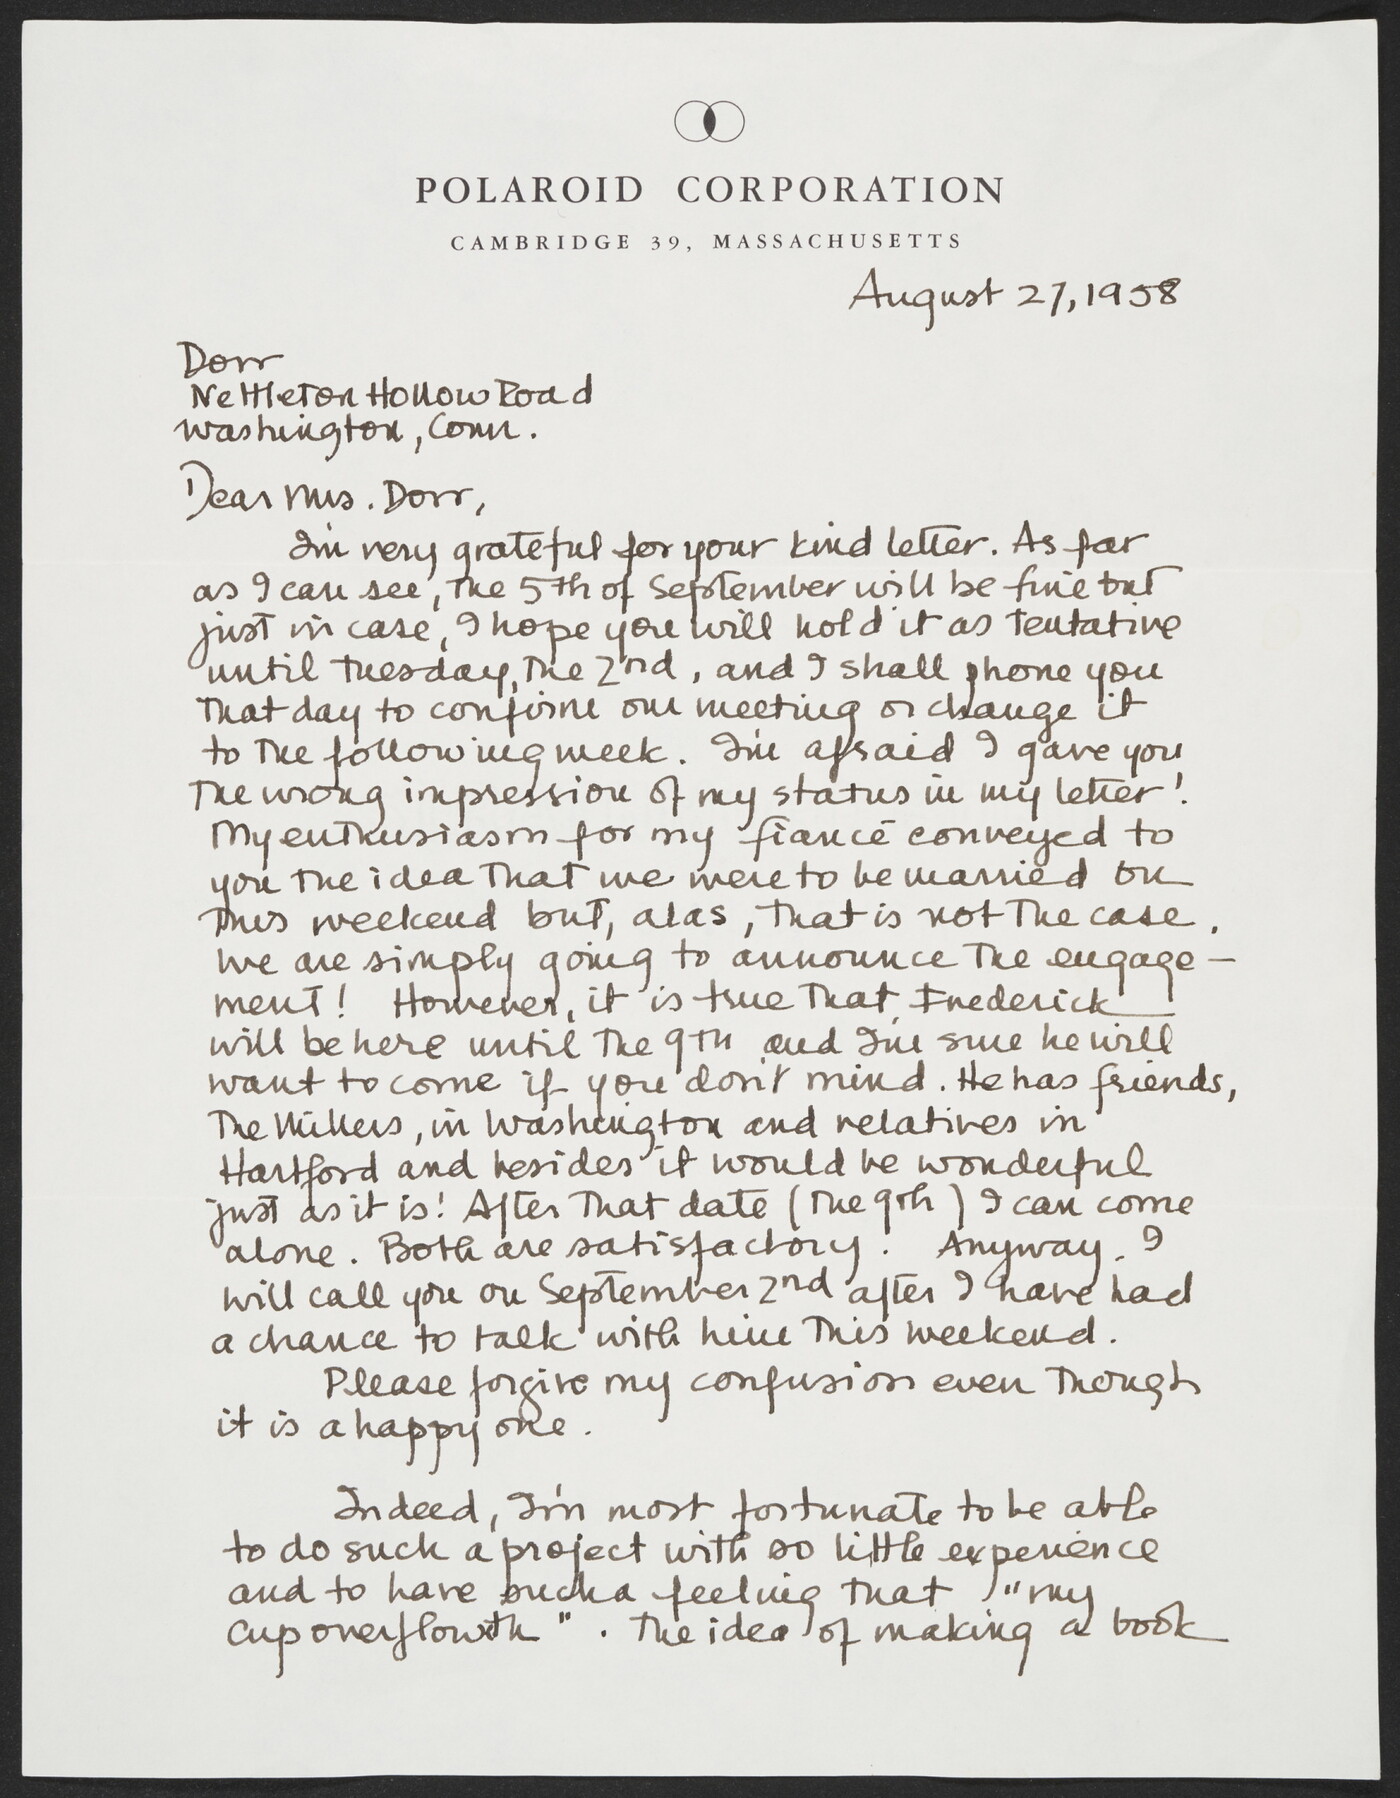 POLAROID CORPORATION
CAMBRIDGE 39, MASSACHUSETTS
August 27, 1958
Dorr
Nettleton Hollow Road
Washington, Conn.
Dear Mrs. Dorr,
I'm very grateful for your kind letter. As far
as I can see, the 5th of September will be fine but
just in case, I hope you will hold it as tentative
until Tuesday, the 2nd, and I shall phone you
that day to confirm our meeting or change it
to the following week. I'm afraid I gave you
the wrong impression of my status in my letter!
My enthusiasm for my fiancé conveyed to
you the idea that we were to be married on
this weekend but, alas, that is not the case.
We are simply going to announce the engage-
ment! However, it is true that Frederick
will be here until the 9th and I'm sure he will
want to come if you don't mind. He has friends,
the Millers, in Washington and relatives in
Hartford and besides it would be wonderful
just as it is! After that date (the 9th) I can come
alone. Both are satisfactory! Anyway, I
will call you on September 2nd after I have had
a chance to talk with him this weekend.
Please forgive my confusion even though
it is a happy one.
Indeed, I'm most fortunate to be able
to do such a project with so little experience
and to have such a feeling that "my
cup overfloweth". The idea of making a book